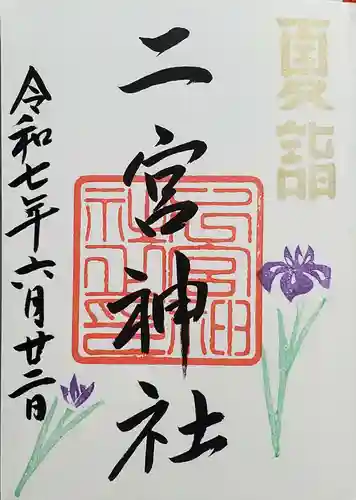 夏詣
二宮神社
令和七年六月廿二日